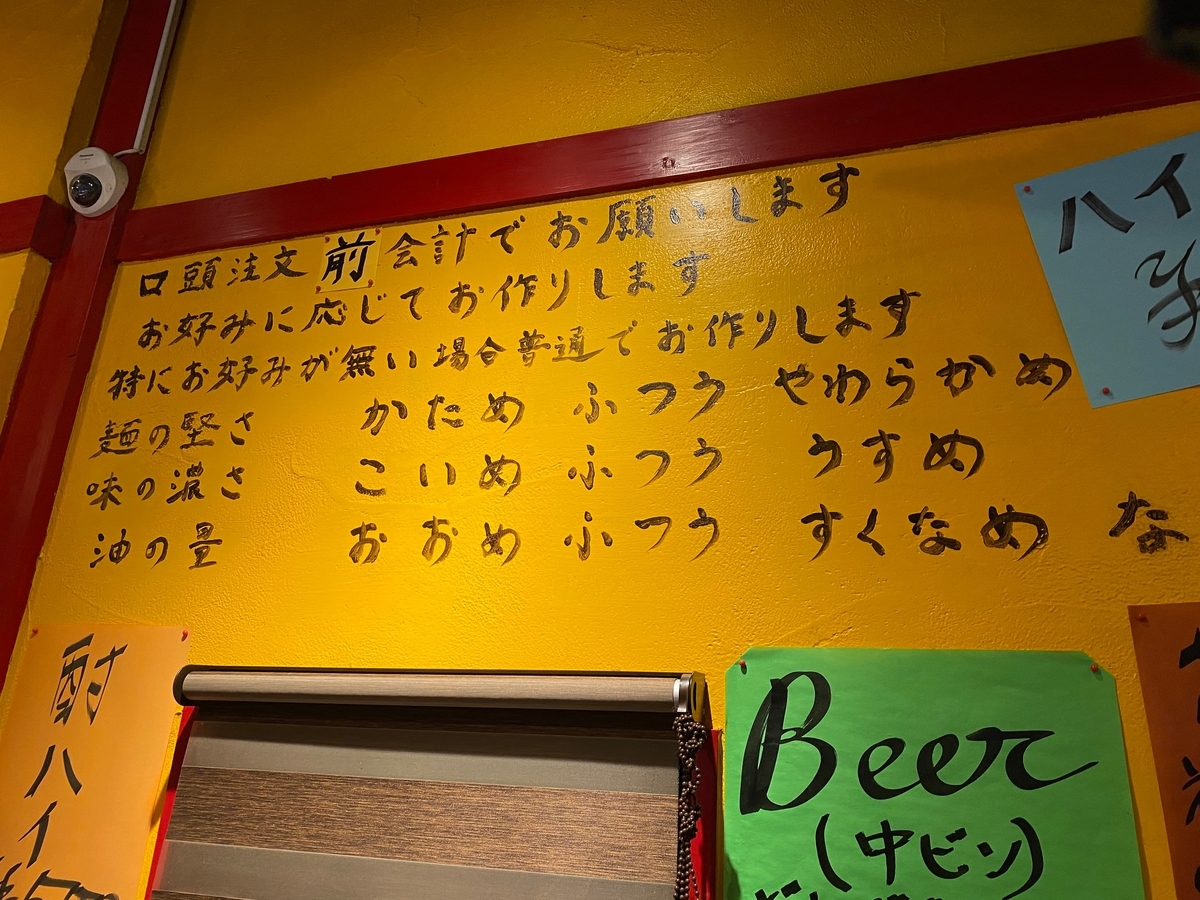 口頭注文前会計でお願いします
お好みに応じてお作りします
特にお好みが無い場合普通でお作りします
麺の堅さ かため ふつう やわらかめ
味の濃さ こいめ ふつう うすめ
油の量 おおめ ふつう すくなめ な
ハイ
酎ハイ
Beer
(中ビン)